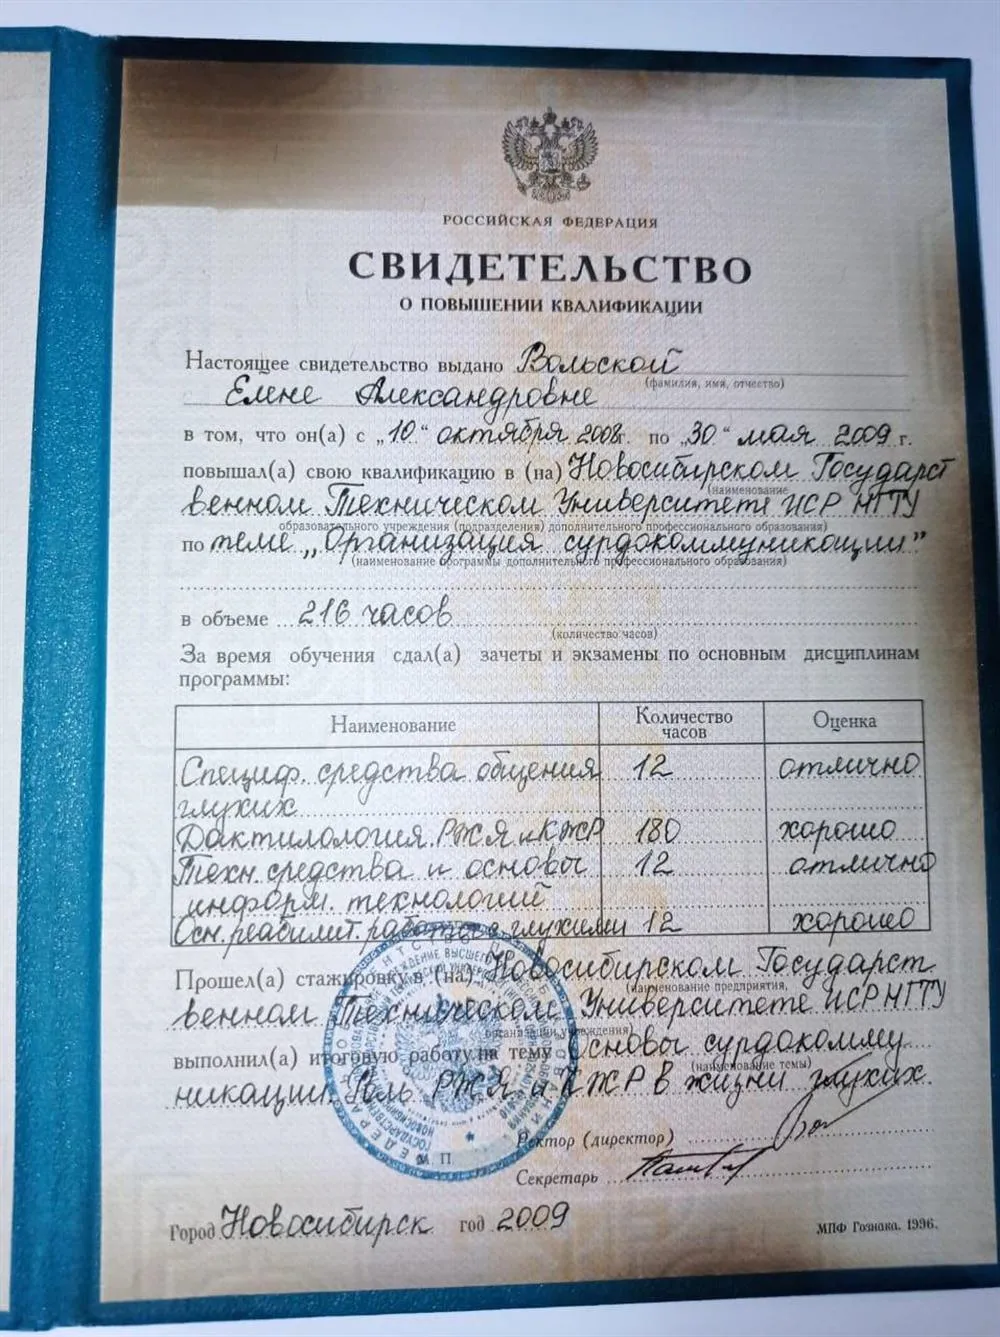 РОССИЙСКАЯ ФЕДЕРАЦИЯ
СВИДЕТЕЛЬСТВО
О ПОВЫШЕНИИ КВАЛИФИКАЦИИ
Настоящее свидетельство выдано Вольской
(фамилия, имя, отчество)
Елене Александровне
в том, что он(а) с „10" октября 2008г. по „30" мая 2009 г.
повышал(а) свою квалификацию в (на) Новосибирском Государст
(наименование
венном Техническом Университете ИСР НГТУ
образовательного учреждения (подразделения) дополнительного профессионального образования)
по теме „Организация сурдокоммуникации"
(наименование программы дополнительного профессионального образования)
в объеме 216 часов
(количество часов)
За время обучения сдал(а) зачеты и экзамены по основным дисциплинам
программы:
Наименование Количество часов Оценка
Специф. средства общения 12 отлично
глухих
Дактилология РЖЯ и КЖР 180 хорошо
Техн. средства и основы 12 отлично
информ. технологий
Осн. реабилит. работы с глухими 12 хорошо
Прошел(а) стажировку в (на) Новосибирском Государст
(наименование предприятия,
венном Техническом Университете ИСР НГТУ
организации, учреждения)
выполнил(а) итоговую работу на тему Основы сурдокомму
(наименование темы)
никации. Роль РЖЯ и КЖР в жизни глухих
Ректор (директор)
М. П.
Секретарь
Город Новосибирск год 2009
МПФ Гознака. 1996.